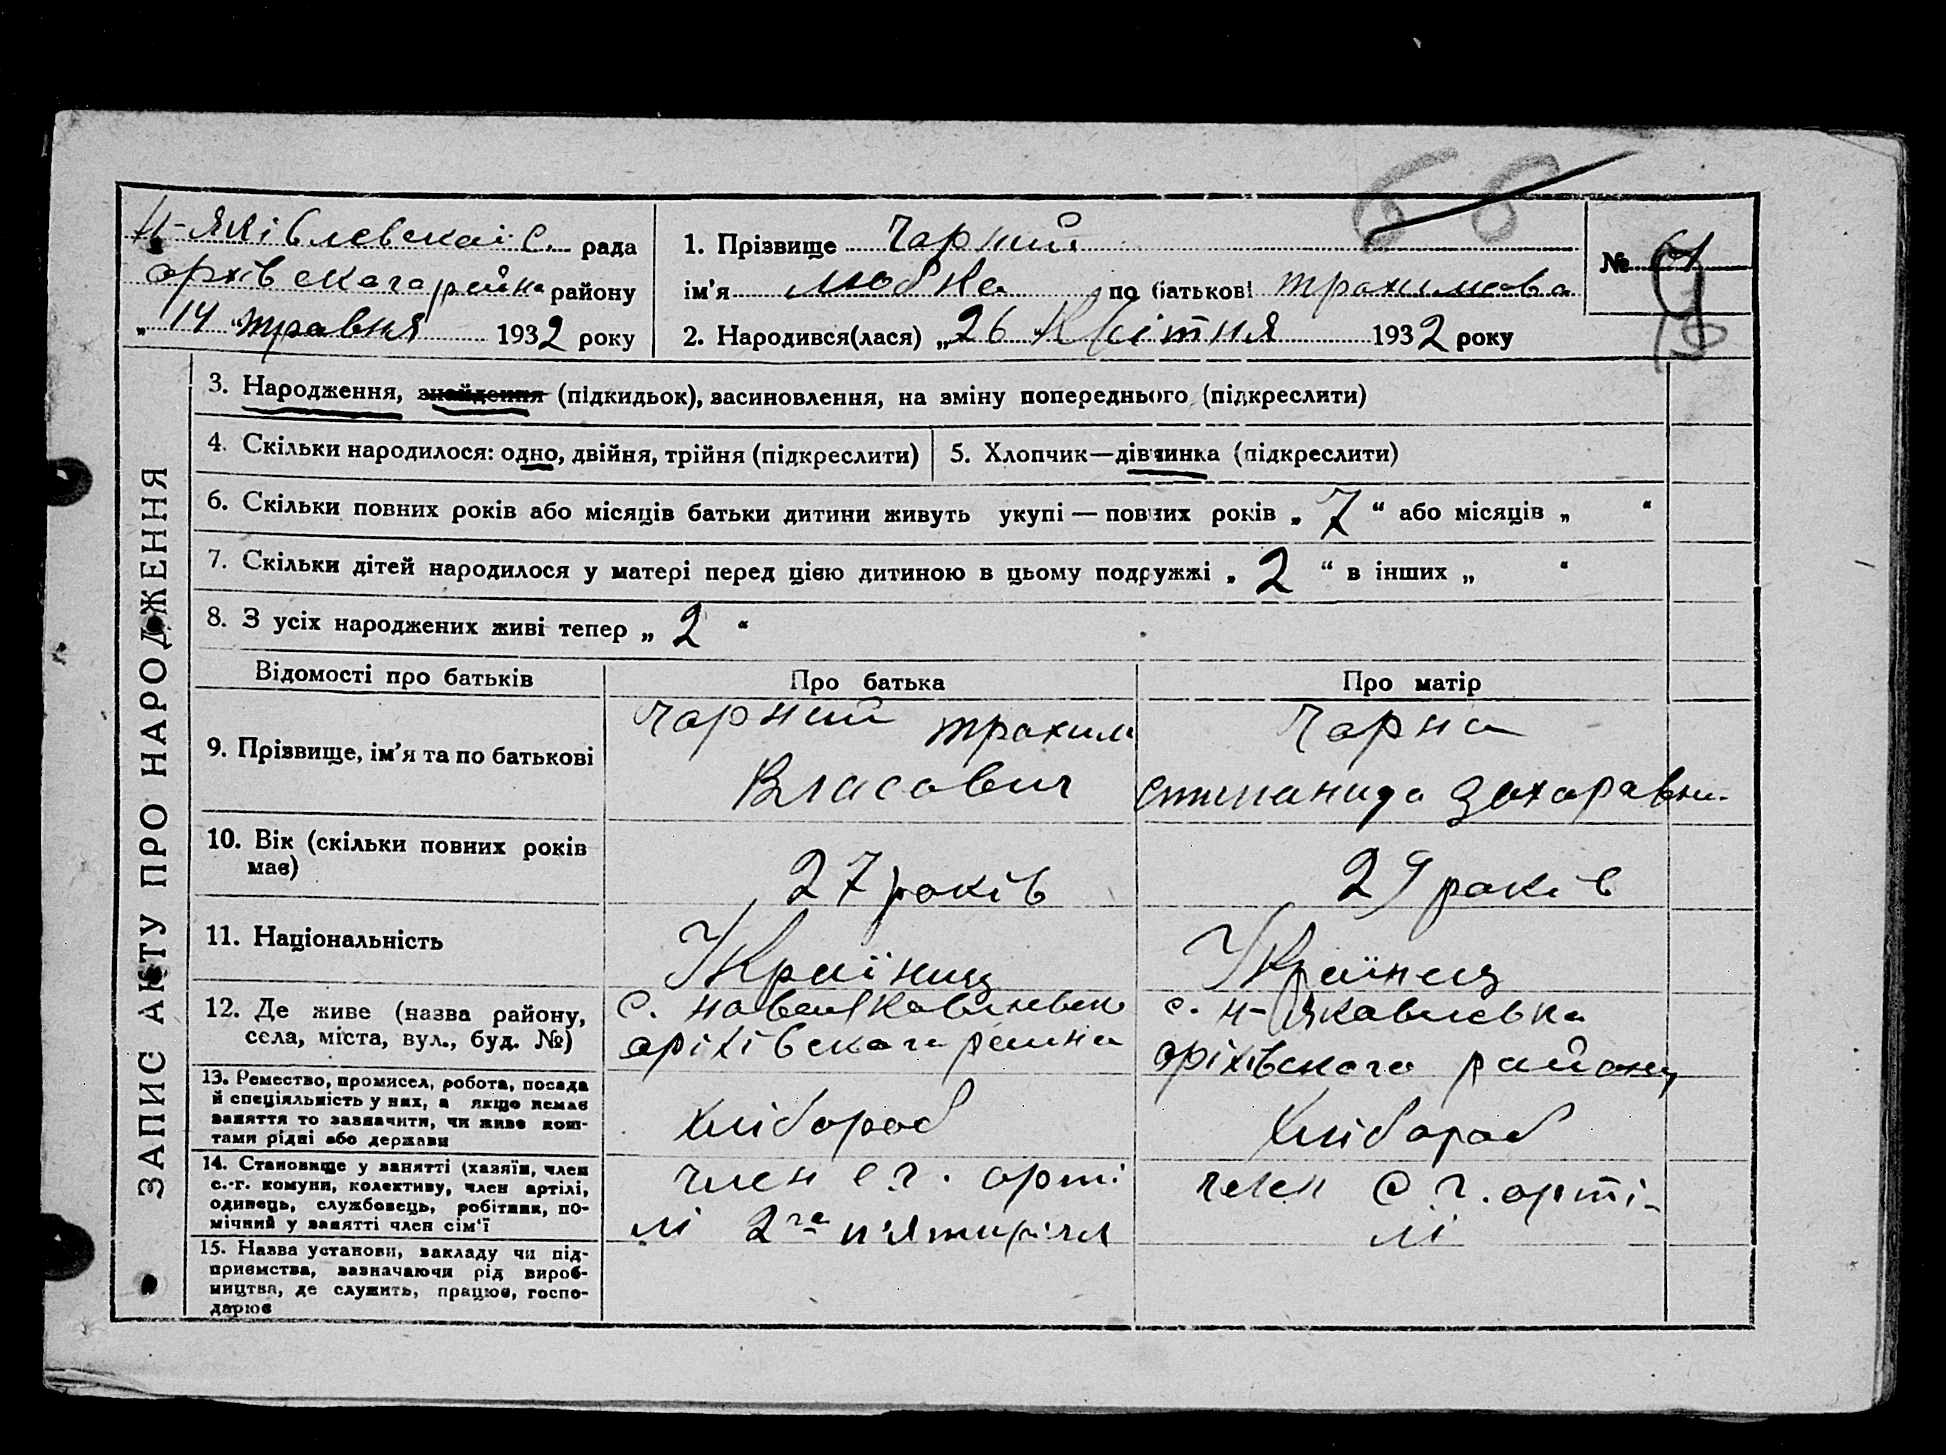 66
Н-Яківлевскаі С. рада
оріхівскага району району
„14“ травня 1932 року
1. Прізвище Чарний
ім'я Любка по батькові Трохимовa
2. Народився(лася) „26“ Квітня 1932 року
№
ЗАПИС АКТУ ПРО НАРОДЖЕННЯ
3. Народження, знайдення (підкидьок), засиновлення, на зміну попереднього (підкреслити)
4. Скільки народилося: одно, двійня, трійня (підкреслити)
5. Хлопчик—дівчинка (підкреслити)
6. Скільки повних років або місяців батьки дитини живуть укупі — повних років „ 7 “ або місяців „ “
7. Скільки дітей народилося у матері перед цією дитиною в цьому подружжі „ 2 “ в інших „ “
8. З усіх народжених живі тепер „ 2 “
Відомості про батьків
Про батька
Про матір
9. Прізвище, ім'я та по батькові
Чарний Трохим
Власович
Чарна
Степанида Захаравна
10. Вік (скільки повних років
має)
27 років
29 років
11. Національність
Українец
Українец
12. Де живе (назва району,
села, міста, вул., буд. №)
с. Новаяковлевка
оріхівскага району
с. Н-Яковлевка
оріхівского району
13. Ремество, промисел, робота, посада
й спеціяльність у них, а якщо немає
заняття то зазначити, чи живе кош-
тами рідні або держави
хлібороб
хлібороб
14. Становище у занятті (хазяїн, член
с.-г. комуни, колективу, член артілі,
одинець, службовець, робітник, по-
мічний у занятті член сім'ї
член с г. арті
лі 2га п'ятирічка
член с г. арті-
лі
15. Назва установи, закладу чи під-
приємства, зазначаючи рід вироб-
ництва, де служить, працює, госпо-
дарює